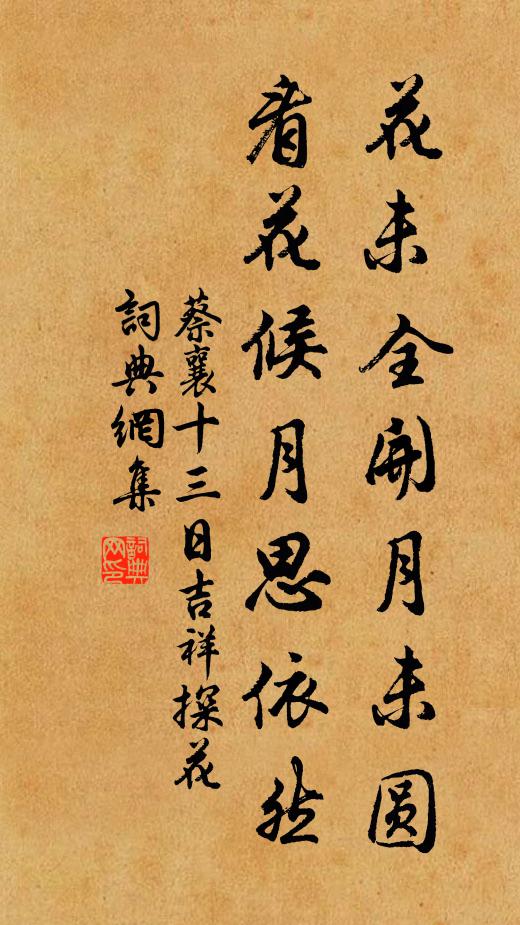 花未全開月未圓
看花候月思依然
蔡襄十三日吉祥探花
詞典網集
詞典網印